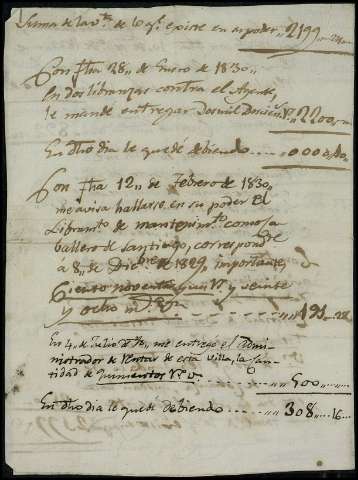 Suma de la v.ta de lo q.e existe en su poder " 2199 " 24 "
Con fha 28 " de Enero de 1830 "
en dos libranzas contra el
le mandé entregar Dos mil Doscien.s " 2200 "
En dho dia le quedé debiendo
Con fha 12 " de Febrero de 1830 "
me avisa hallarse en su poder el
Libram.to de mantenim.to como Ca
ballero de Santiago, correspond.te
á 8 " de Dic.bre de 1829, importante,
Ciento noventa y un r.s y veinte
y ocho m.s V.n " " 191 " 28
En 4, de Julio me entregó el Admi=
nistrador de Rentas de esta villa, la Can=
tidad de quinientos r.s v.n " 500
En dho dia le quedé debiendo " 308 " 16